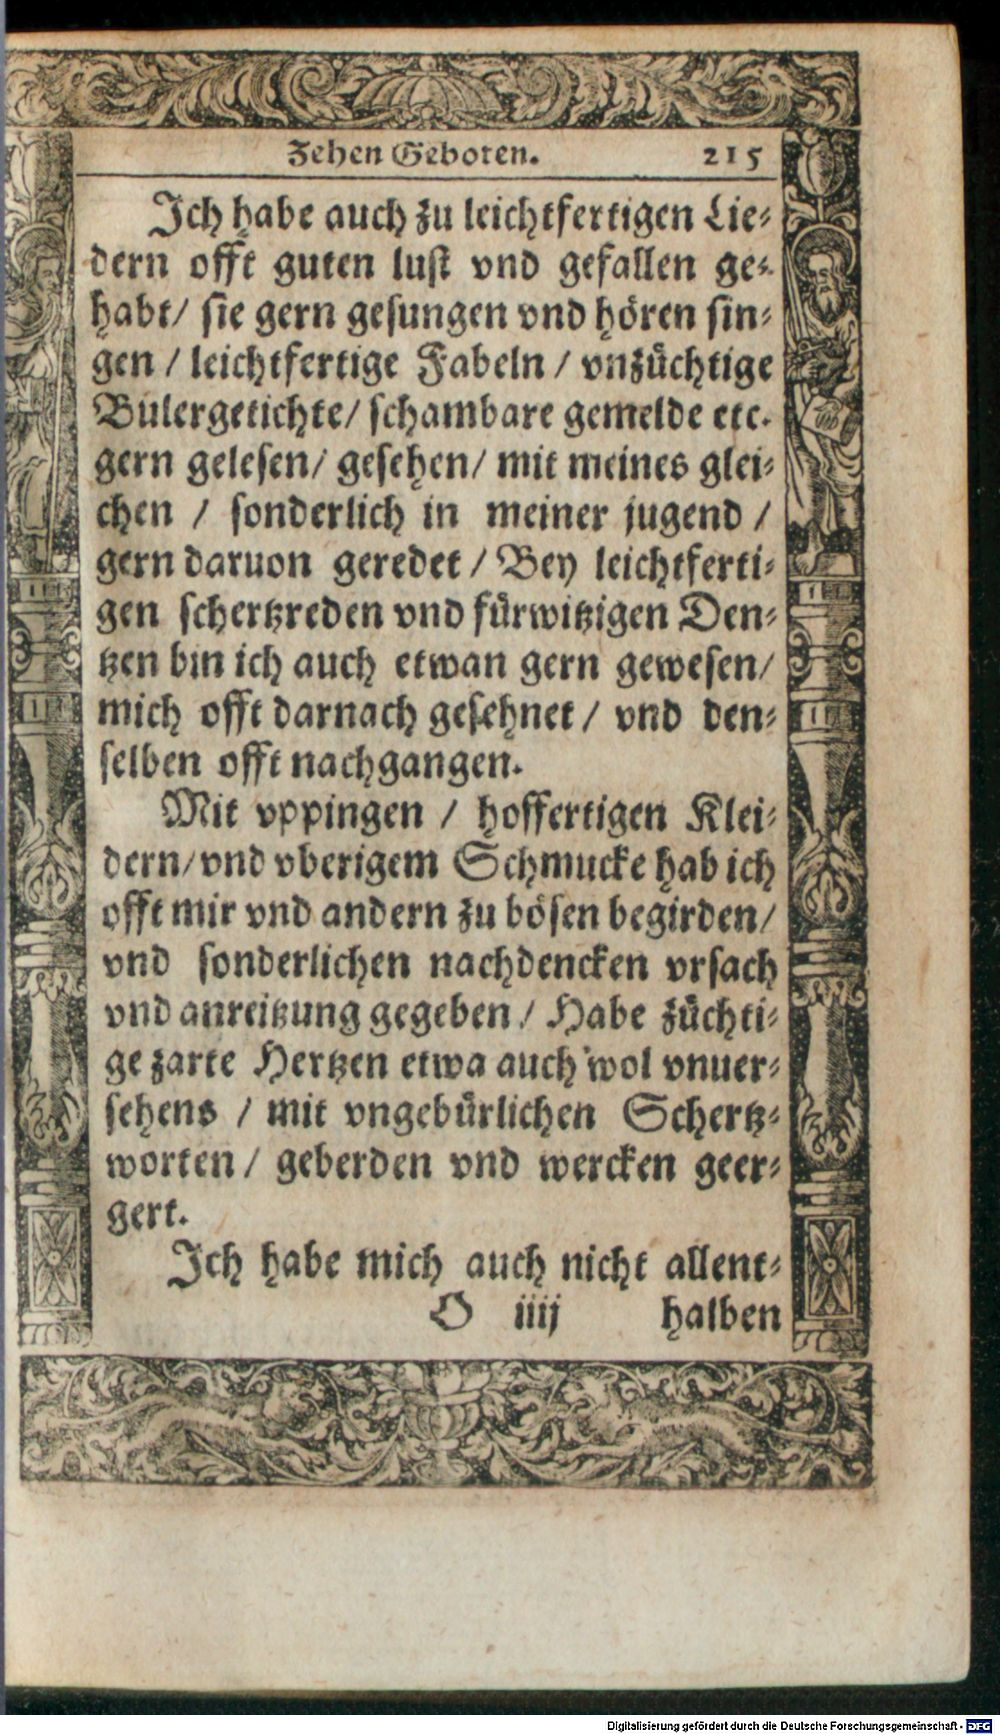 Zehen Geboten. 215
Ich habe auch zu leichtfertigen Lie⸗
dern offt guten lust vnd gefallen ge⸗
habt/ sie gern gesungen vnd hören sin⸗
gen / leichtfertige Fabeln / vnzüchtige
Bulergetichte/ schambare gemelde etc.
gern gelesen/ gesehen/ mit meines glei⸗
chen / sonderlich in meiner jugend /
gern daruon geredet / Bey leichtferti⸗
gen schertzreden vnd fürwitzigen Den⸗
tzen bin ich auch etwan gern gewesen/
mich offt darnach gesehnet / vnd den⸗
selben offt nachgangen.
Mit vppingen / hoffertigen Klei⸗
dern/ vnd vberigem Schmucke hab ich
offt mir vnd andern zu bösen begirden/
vnd sonderlichen nachdencken vrsach
vnd anreitzung gegeben / Habe züchti⸗
ge zarte Hertzen etwa auch wol vnuer⸗
sehens / mit vngebürlichen Schertz⸗
worten / geberden vnd wercken geer⸗
gert.
Ich habe mich auch nicht allent⸗
O iiij halben
Digitalisierung gefördert durch die Deutsche Forschungsgemeinschaft - DFG